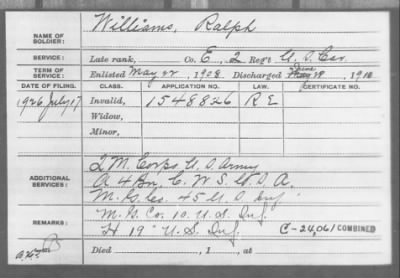 Williams, Ralph
NAME OF SOLDIER:
SERVICE: Late rank, Co. E, 2 Regt U. S. Cav.
TERM OF SERVICE: Enlisted May 22, 1908 Discharged June, 1910
DATE OF FILING. CLASS. APPLICATION NO. LAW. CERTIFICATE NO.
1926 July 17 Invalid, 1548826 R E
Widow,
Minor,
ADDITIONAL SERVICES: Q M. Corps U. S. Army
A 4 Bn, C. W S. U. S. A.
M. G. Co. 45 U. S. Inf.
REMARKS: M. G. Co. 10. U. S. Inf.
H 19" U. S. Inf. C-24,061 COMBINED
Died, 1, at